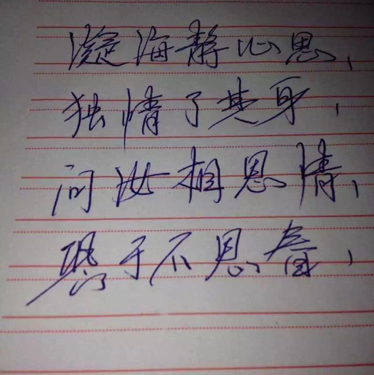 凝海静心思，
独情了其身，
问汝相思情，
恐于不思音，